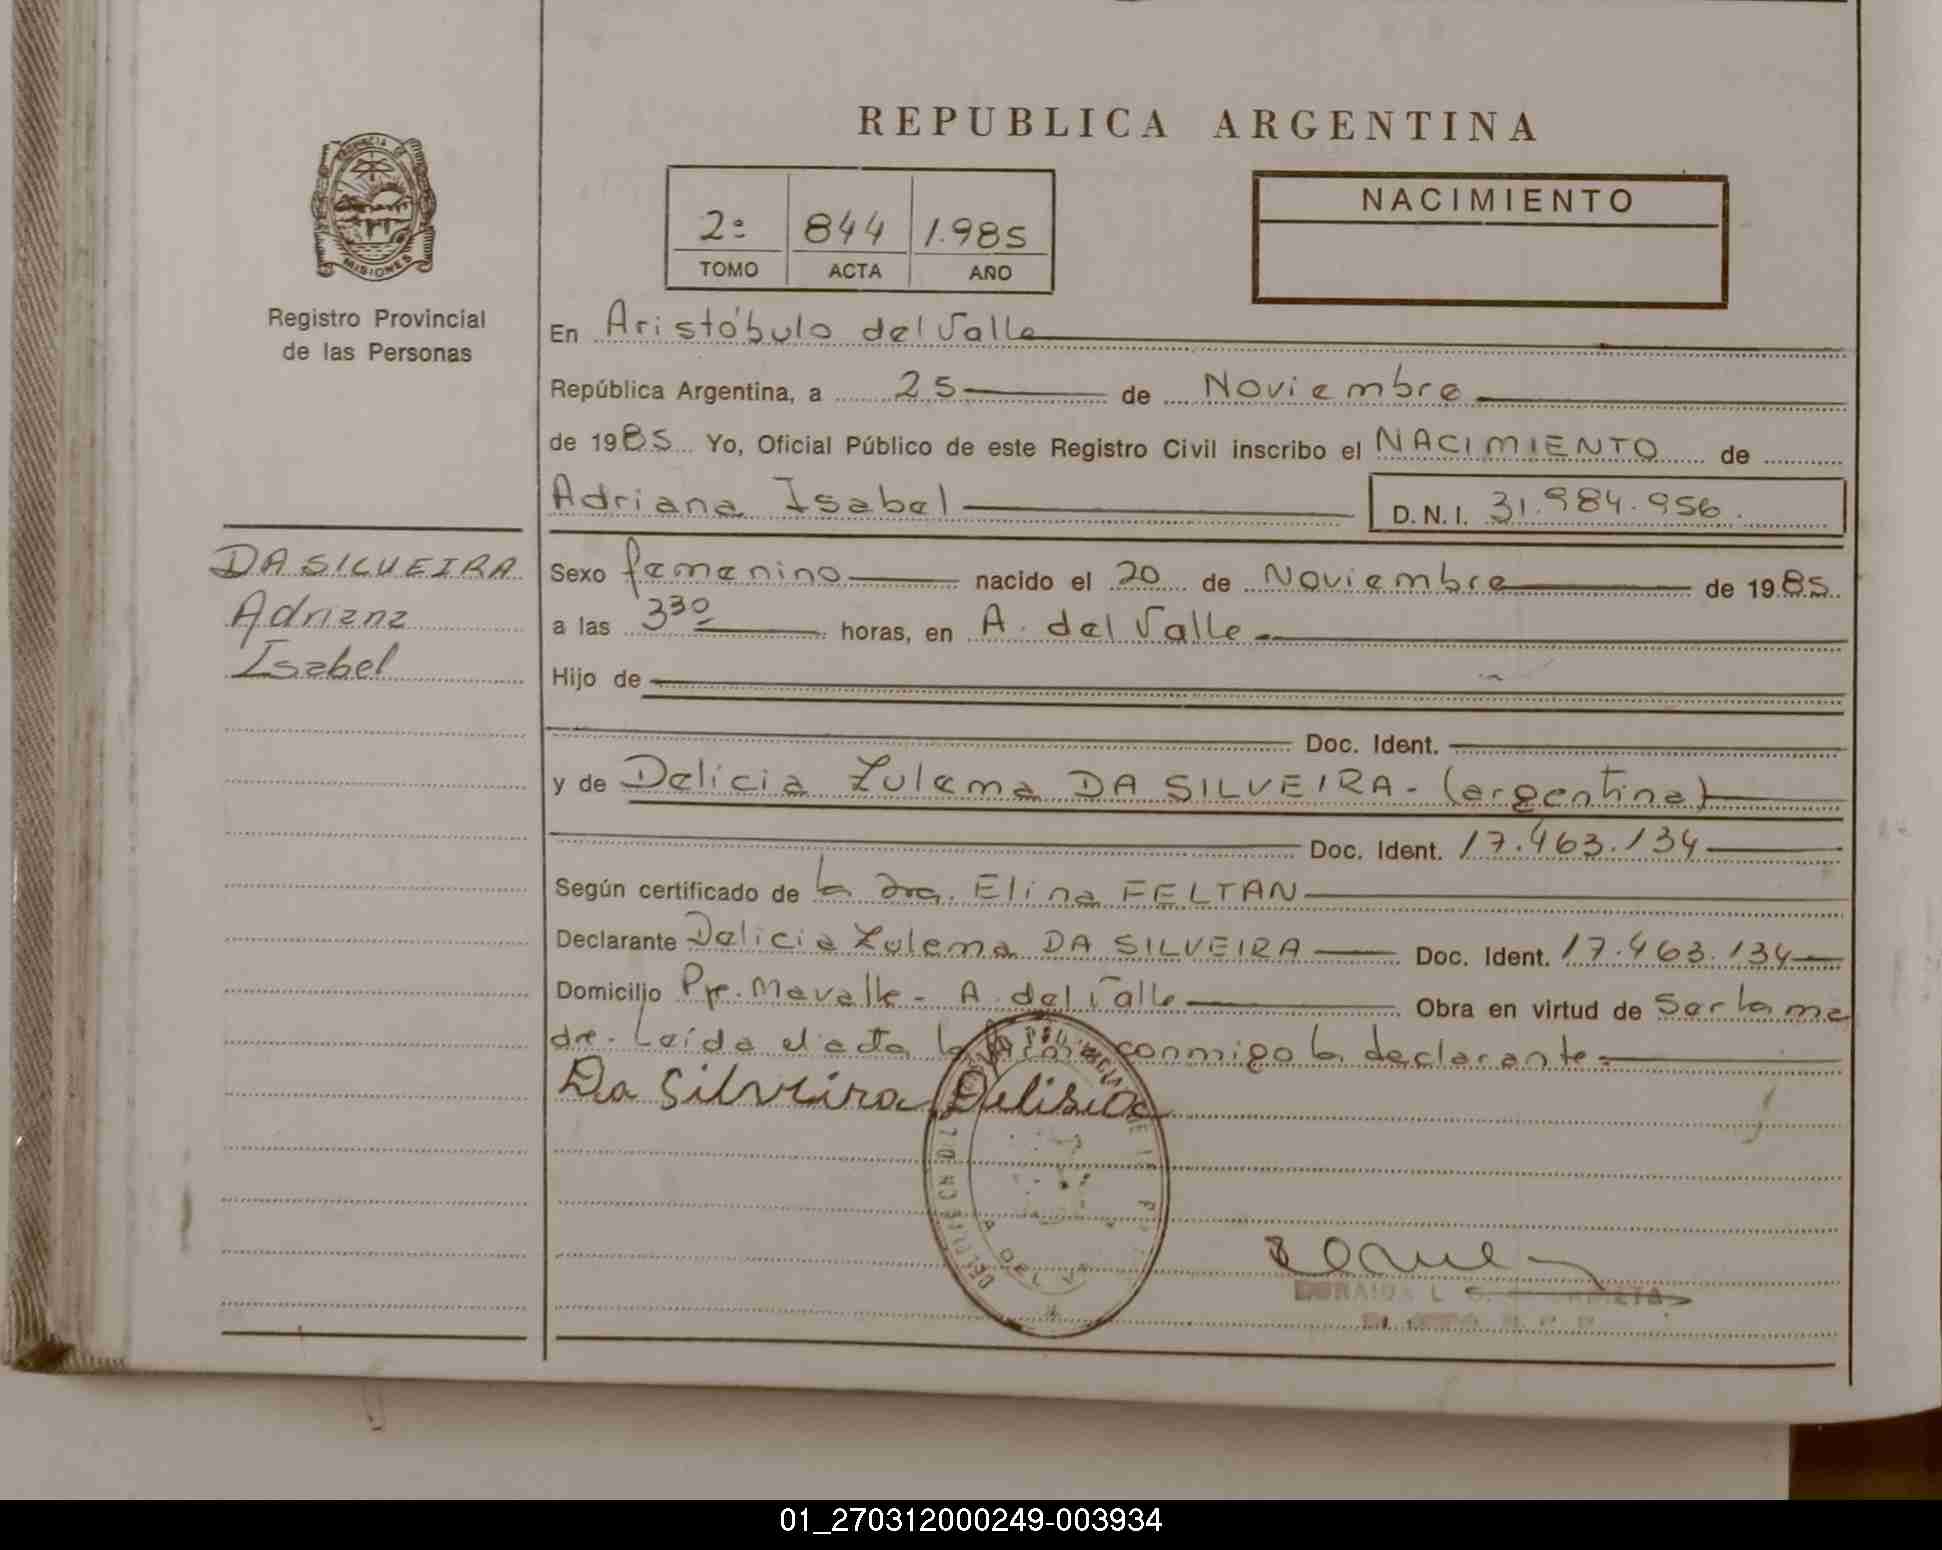 REPUBLICA ARGENTINA
PROVINCIA DE
MISIONES
Registro Provincial
de las Personas
2º 844 1.985
TOMO ACTA AÑO
NACIMIENTO
En Aristóbulo del Valle
República Argentina, a 25 de Noviembre
de 1985 Yo, Oficial Público de este Registro Civil inscribo el NACIMIENTO de
Adriana Isabel D.N.I. 31.984.956.
DA SILVEIRA
Adriana
Isabel
Sexo femenino nacido el 20 de Noviembre de 1985
a las 3³⁰ horas, en A. del Valle
Hijo de
Doc. Ident.
y de Delicia Zulema DA SILVEIRA - (argentina)
Doc. Ident. 17.463.134
Según certificado de la Dra. Elina FELTAN
Declarante Delicia Zulema DA SILVEIRA Doc. Ident. 17.463.134
Domicilio Pje. Mavalle - A. del Valle Obra en virtud de ser la ma
dre. Leída el acta la firma conmigo la declarante.
Da Silveira Delisia
01_270312000249-003934